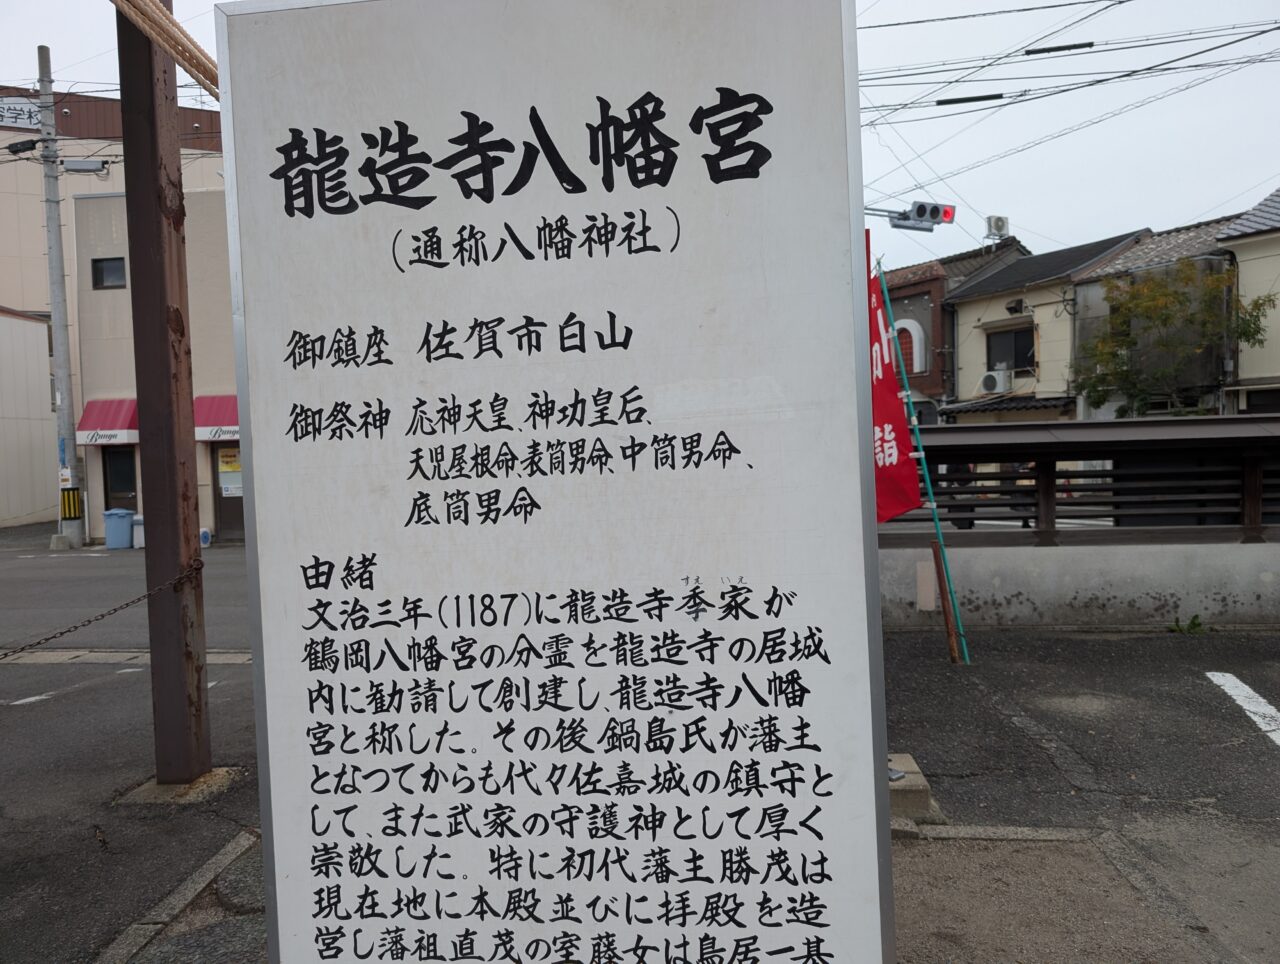 龍造寺八幡宮
(通称八幡神社)
御鎮座 佐賀市白山
御祭神 応神天皇、神功皇后、
天児屋根命、表筒男命、中筒男命、
底筒男命
由緒
すえ いえ
文治三年(1187)に龍造寺季家が
鶴岡八幡宮の分霊を龍造寺の居城
内に勧請して創建し、龍造寺八幡
宮と称した。その後鍋島氏が藩主
となつてからも代々佐嘉城の鎮守と
して、また武家の守護神として厚く
崇敬した。特に初代藩主勝茂は
現在地に本殿並びに拝殿を造
営し藩祖直茂の室藤女は鳥居一基
詣
学校